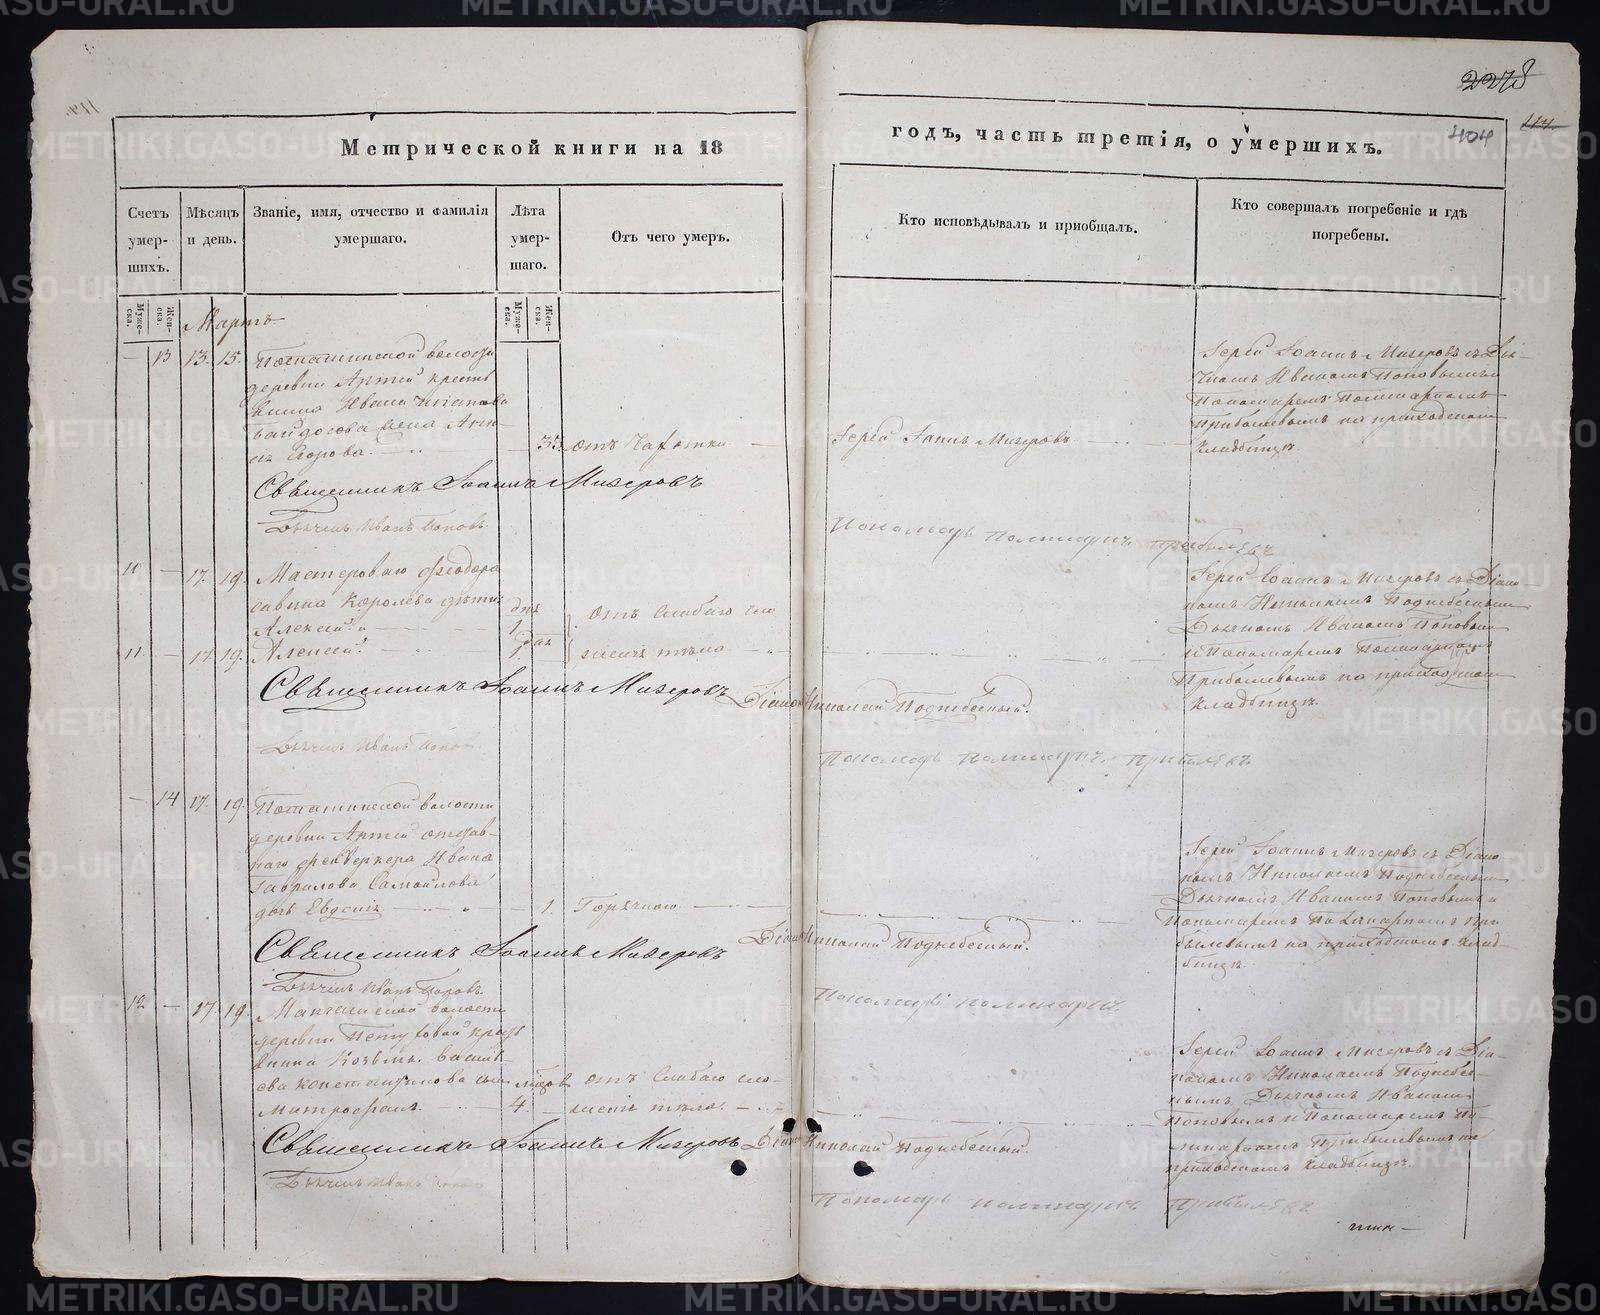 2278
404
114.
Метрической книги на 18
годъ, часть третія, о умершихъ.
Счетъ умер-шихъ.
Мѣсяцъ и день.
Званіе, имя, отчество и фамилія умершаго.
Лѣта умер-шаго.
Отъ чего умеръ.
Кто исповѣдывалъ и приобщалъ.
Кто совершалъ погребеніе и гдѣ погребены.
Муже-ска.
Жен-ска.
Муже-ска.
Жен-ска.
Мартъ
— 13 13. 15.
Поташинской волости
деревни Артей кресть
янина Ивана
жена
Егорова.
35. отъ Чахотки
Іерей Іоаннъ Мизеровъ
Іерей Іоаннъ Мизеровъ съ Дья-
чкомъ Иваномъ Поповымъ
Пономаремъ Поликарпомъ
Прибылевымъ на приходскомъ
кладбищѣ.
Священникъ Іоаннъ Мизеровъ
Дьячекъ Иванъ Поповъ.
Пономарь Поликарпъ Прибылевъ
10 — 17. 19.
Мастероваго Ѳеодора
Савина Королева дѣти
Алексій 1 дня
11. — 17. 19. Алексей 1 дня
отъ слабаго сло
женія тѣла
Іерей Іоаннъ Мизеровъ съ Діако-
номъ Николаемъ Поднебеснымъ
Дьячкомъ Иваномъ Поповымъ
и Пономаремъ Поликарпомъ
Прибылевымъ на приходскомъ
кладбищѣ.
Священникъ Іоаннъ Мизеровъ Діаконъ Николай Поднебесный.
Дьячекъ Иванъ Поповъ
Пономарь Поликарпъ Прибылевъ.
— 14 17. 19.
Поташинской волости
деревни Артей отстав-
наго феерверкера Ивана
Гаврилова Самойлова
дочь Евдокія
1. Горячкою
Іерей Іоаннъ Мизеровъ съ Діако-
номъ Николаемъ Поднебеснымъ
Дьячкомъ Иваномъ Поповымъ и
Пономаремъ Поликарпомъ При
былевымъ на приходскомъ клад-
бищѣ.
Священникъ Іоаннъ Мизеровъ Діаконъ Николай Поднебесный.
Дьячекъ Иванъ Поповъ.
Пономарь Поликарпъ
12 — 17. 19.
Манчажской волости
деревни Петуховой кресть
янина Козьмы Василь-
ева Константинова сынъ
Митрофанъ.
мѣсяцов
4.
отъ слабаго сло-
женія тѣла.
Іерей Іоаннъ Мизеровъ съ Діа-
кономъ Николаемъ Поднебес-
нымъ, Дьячкомъ Иваномъ
Поповымъ и Пономаремъ По-
ликарпомъ Прибылевымъ на
приходскомъ кладбищѣ.
Священникъ Іоаннъ Мизеровъ Діаконъ Николай Поднебесный.
Дьячекъ Иванъ Поповъ
Пономарь Поликарпъ Прибылевъ
METRIKI.GASO-URAL.RU